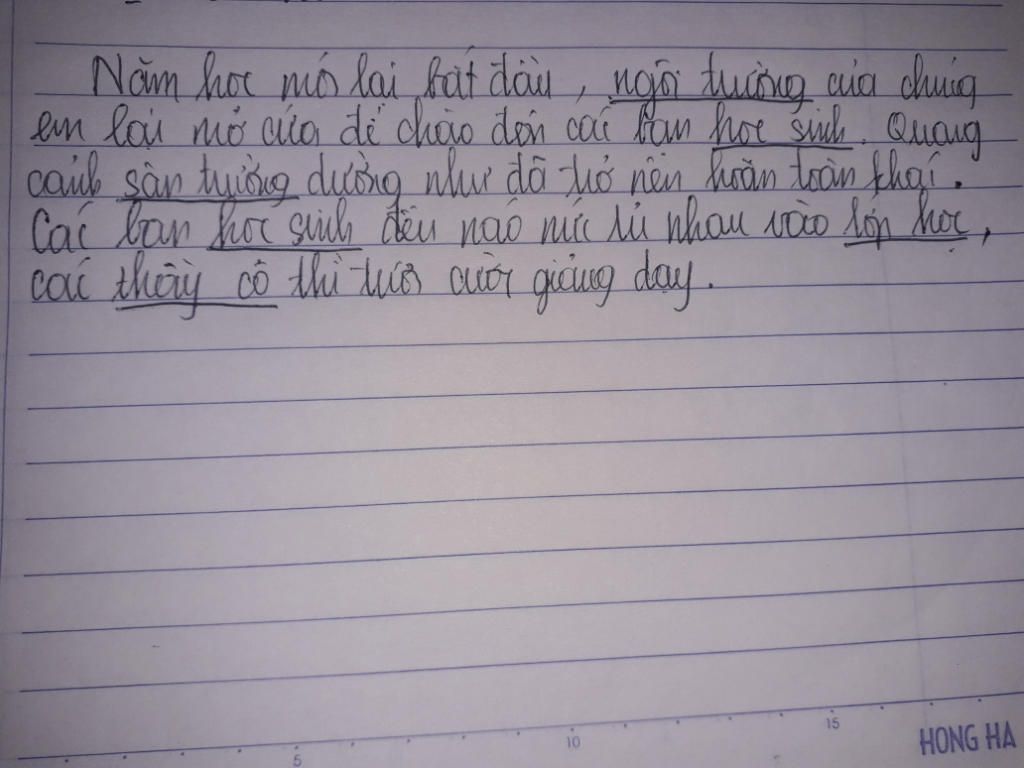 Năm học mới lại bắt đầu, ngôi trường của chúng
em lại mở cửa để chào đón các bạn học sinh. Quang
cảnh sân trường dường như đã trở nên hoàn toàn khác.
Các bạn học sinh đều náo nức rủ nhau vào lớp học,
các thầy cô thì tươi cười giảng dạy.
5 10 15
HONG HA